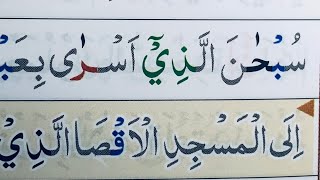 سُبْحٰنَ الَّذِيْٓ اَسْرٰى
اِلَى الْمَسْجِدِ الْاَقْصَا الَّذِيْ